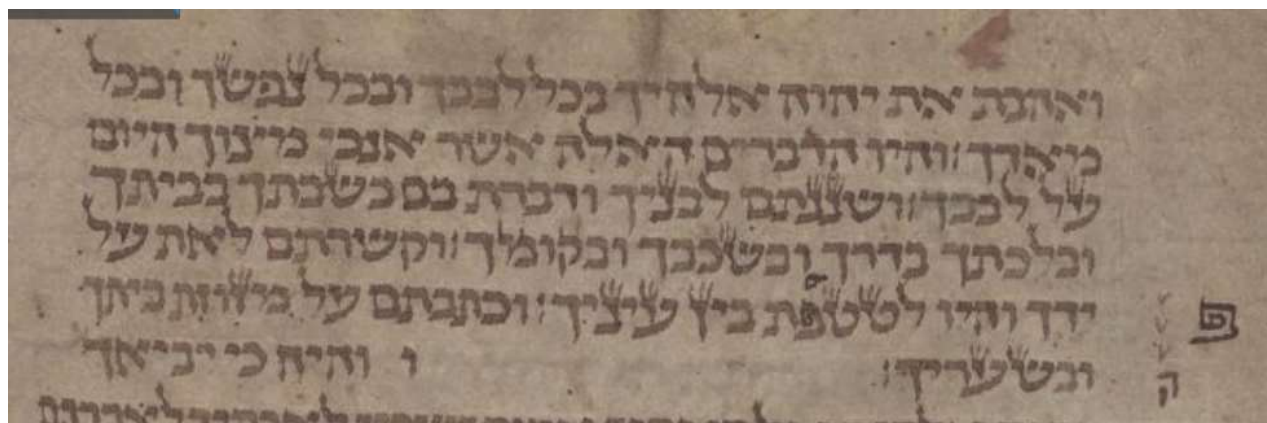 ואהבת את יהוה אלהיך בכל לבבך ובכל נפשך ובכל
מאדך׃ והיו הדברים האלה אשר אנכי מצוך היום
על לבבך׃ ושננתם לבניך ודברת בם בשבתך בביתך
ובלכתך בדרך ובשכבך ובקומך׃ וקשרתם לאת על
ידך והיו לטטפת בין עיניך׃ וכתבתם על מזוזת ביתך
ובשעריך׃ ו והיה כי יביאך
פ
ה